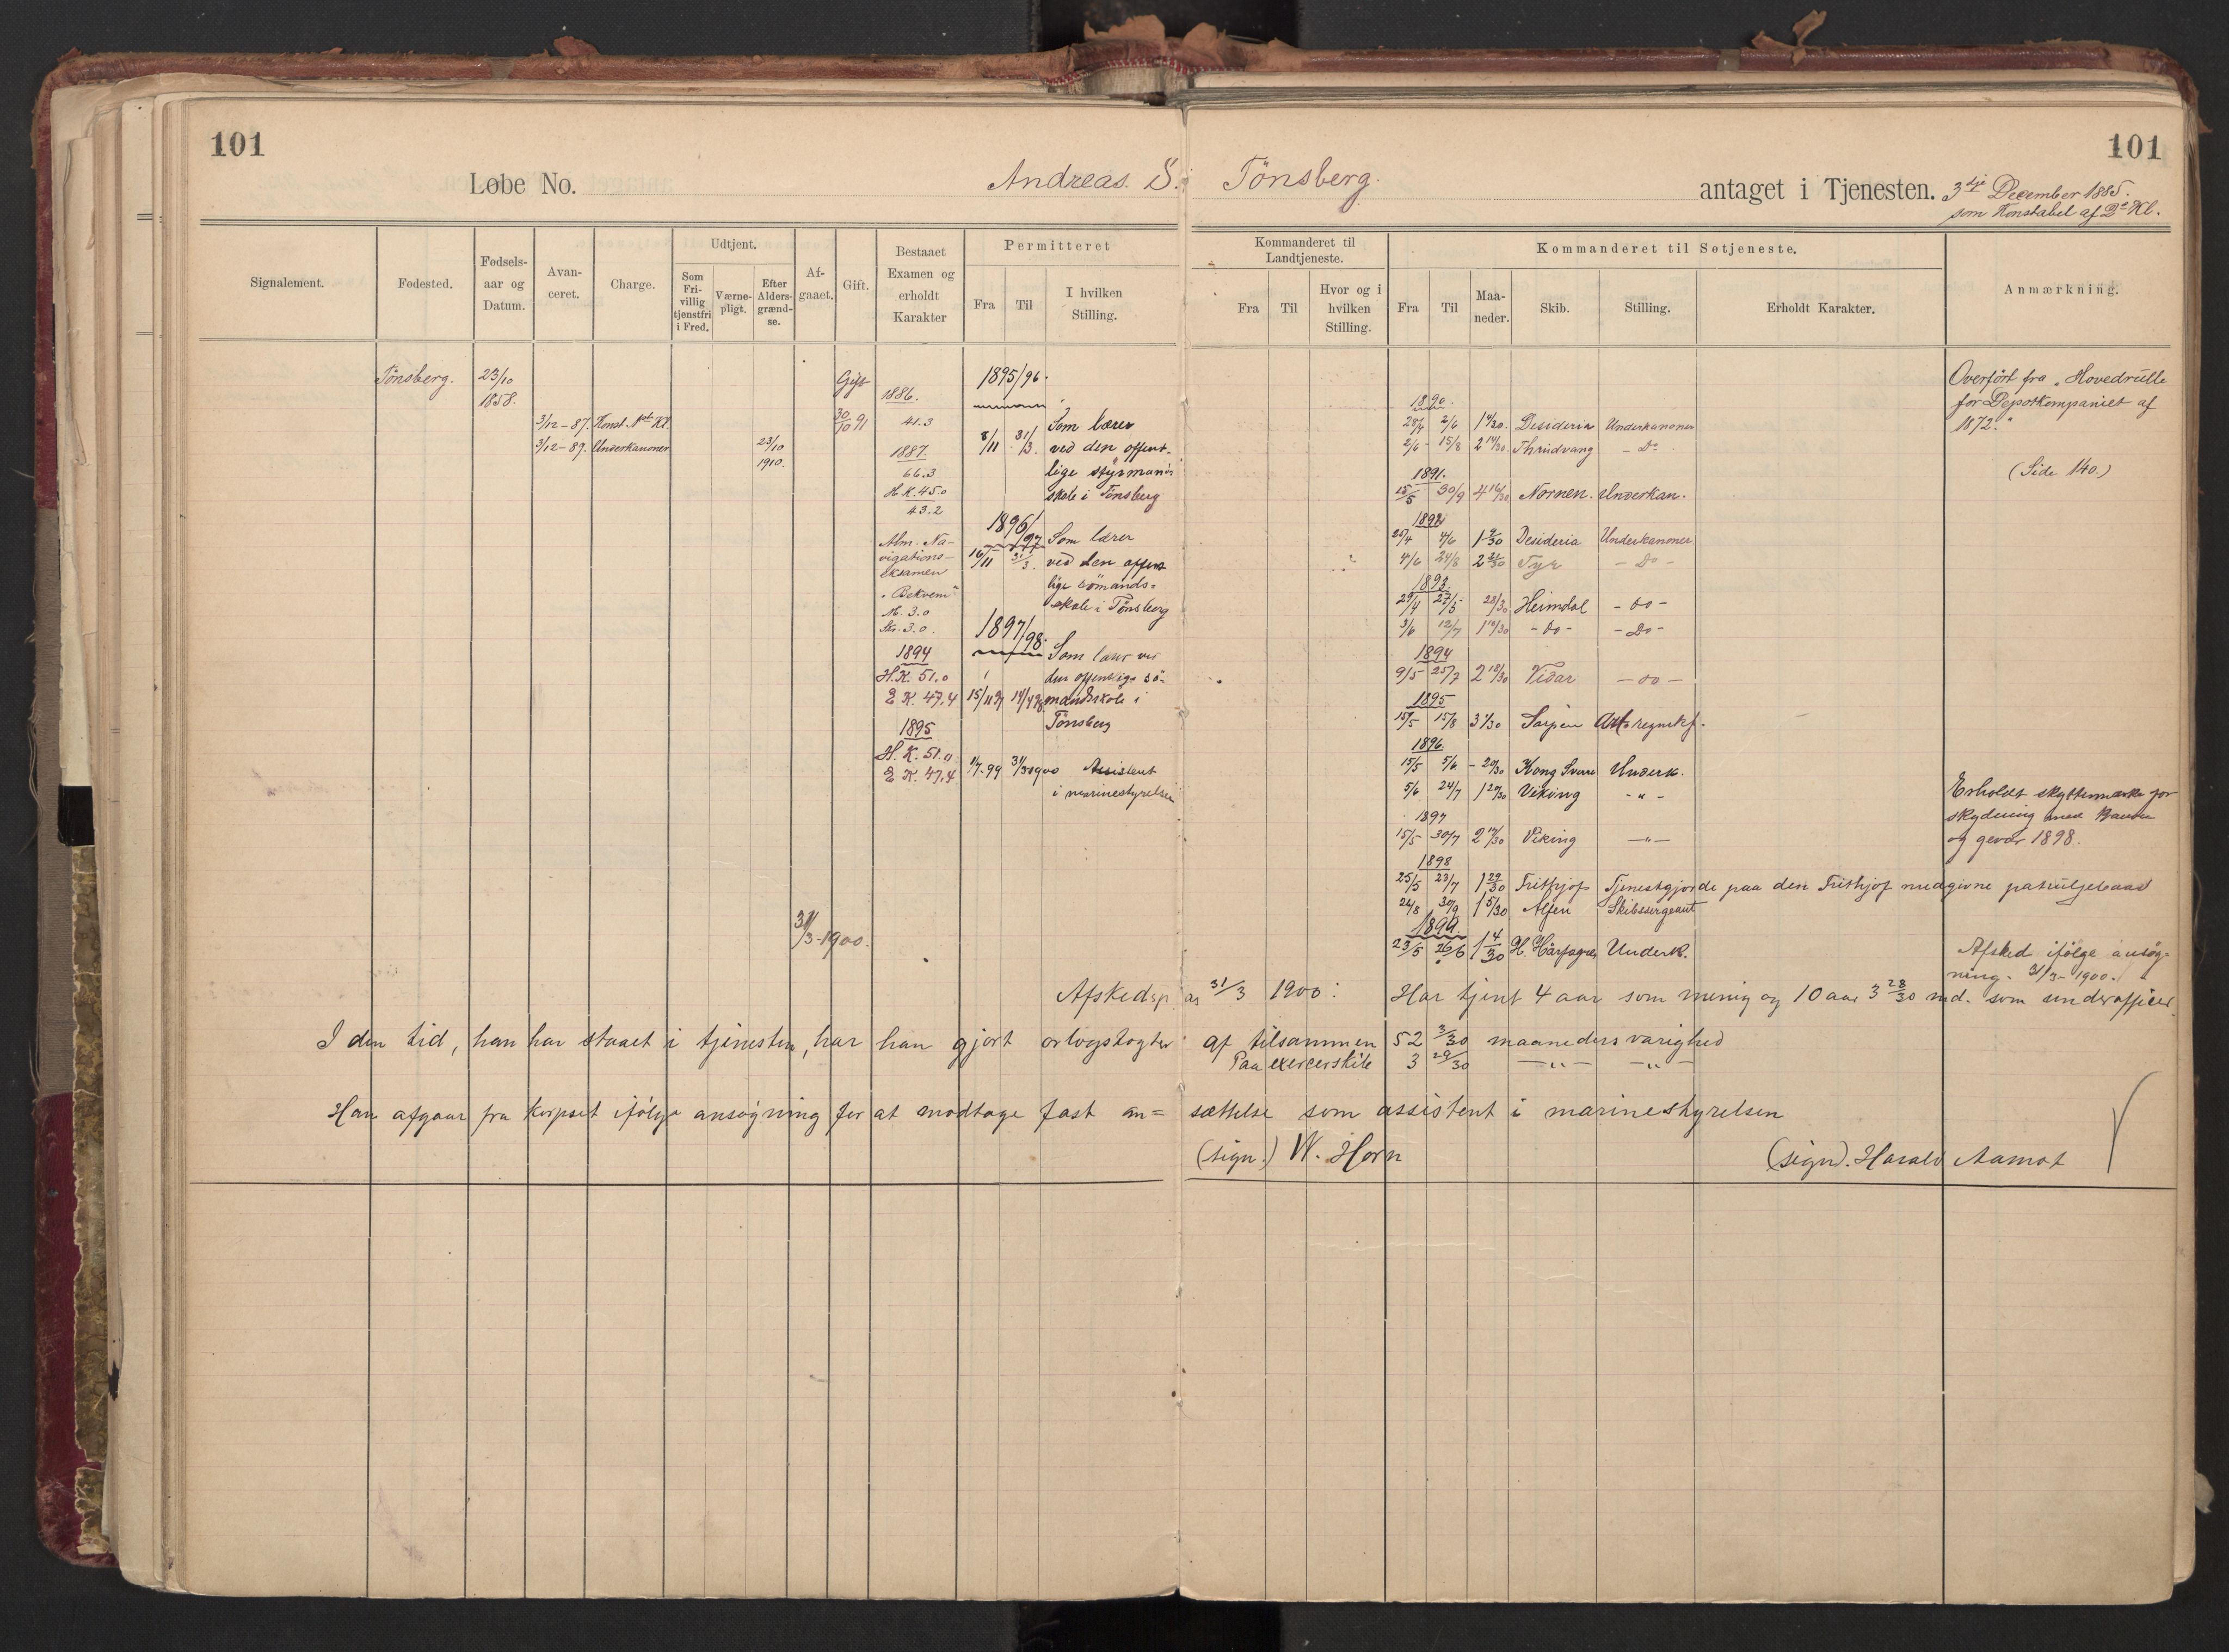 101
101
Løbe No.
Andreas. S. Tönsberg.
antaget i Tjenesten. 3dje December 1885.
som Konstabel af 2en Kl.
Signalement.
Fødested.
Fødsels-
aar og
Datum.
Avan-
ceret.
Charge.
Udtjent.
Som
Fri-
villig
tjenstfri
i Fred.
Værne-
pligt.
Efter
Alders-
grænd-
se.
Af-
gaaet.
Gift.
Bestaaet
Examen og
erholdt
Karakter
Permitteret
Fra
Til
I hvilken
Stilling.
Kommanderet til
Landtjeneste.
Fra
Til
Hvor og i
hvilken
Stilling.
Kommanderet til Søtjeneste.
Fra
Til
Maa-
neder.
Skib.
Stilling.
Erholdt Karakter.
Anmærkning.
Tönsberg.
23/10
1858.
3/12-87. Konst. 1st Kl.
3/12-89. Underkanoner
23/10
1910.
31/3-1900.
Gift
30/10 91
1886.
41.3
1887.
66.3
H.K. 45.0
43.2
Alm. Na-
vigations-
eksamen
"Bekvem"
M. 3.0
Skr. 3.0.
1894
H.K. 51.0
E K. 47,4
1895
H.K. 51.0
E K. 47,4
1895/96.
8/11 31/3. Som lærer
ved den offent-
lige styrmands
skole i Tönsberg
1896/97
16/11 31/3. Som lærer
ved den offent
lige sömands-
skole i Tönsberg
1897/98.
Som lærer ved
den offentlige sö-
15/11 97 14/4 98 mandsskole i
Tönsberg
1/7-99 31/3 1900 Assistent
i marinestyrelsen
1890.
28/4 2/6 1 4/30. Desideria Underkanoner
2/6- 15/8 2 14/30 Thrudvang - Do
1891.
15/5 30/9 4 16/30 Nornen. Underkan.
1892
25/4 4/6 1 9/30 Desideria Underkanoner
4/6 24/8 2 21/30 Tyr - Do -
1893.
29/4 27/5 28/30 Heimdal - do -
3/6 12/7 1 10/30 - do - - Do -
1894
9/5 25/7 2 18/30 Vidar - do -
1895
15/5 15/8 3 1/30 Sarpen Att. regnskf.
1896.
15/5 5/6 - 20/30 Kong Sverre Underk.
5/6 24/7 1 20/30 Viking - " -
1897
15/5- 30/7 2 14/30 Viking - " -
1898
25/5 23/7 1 29/30 Frithjof Tjenestgjorde paa den Frithjof medgivne patruljebaad
26/8 30/9 1 5/30 Alfen Skibssergeant
1899.
23/5 26/6 1 4/30 H. Hårfagre Underk.
Overfört fra "Hovedrulle
for Depotkompaniet af
1872."
(Side 140.)
Erholdt skyttermærke for
skydning med kanon
og gevær 1898.
Afsked ifölge ansög-
ning. 31/3-1900.
Afskedsp. as 31/3 1900: Har tjent 4 aar som menig og 10 aar 3 28/30 md. som underofficer.
I den tid, han har staaet i tjenesten, har han gjort orlogstogter af tilsammen 52 3/30 maaneders varighed
Paa exercerskibe 3 29/30 - " - - " -
Han afgaar fra korpset ifölge ansögning for at modtage fast an= sættelse som assistent i marinestyrelsen
(sign.) W. Horn
(sign). Harald Aamot